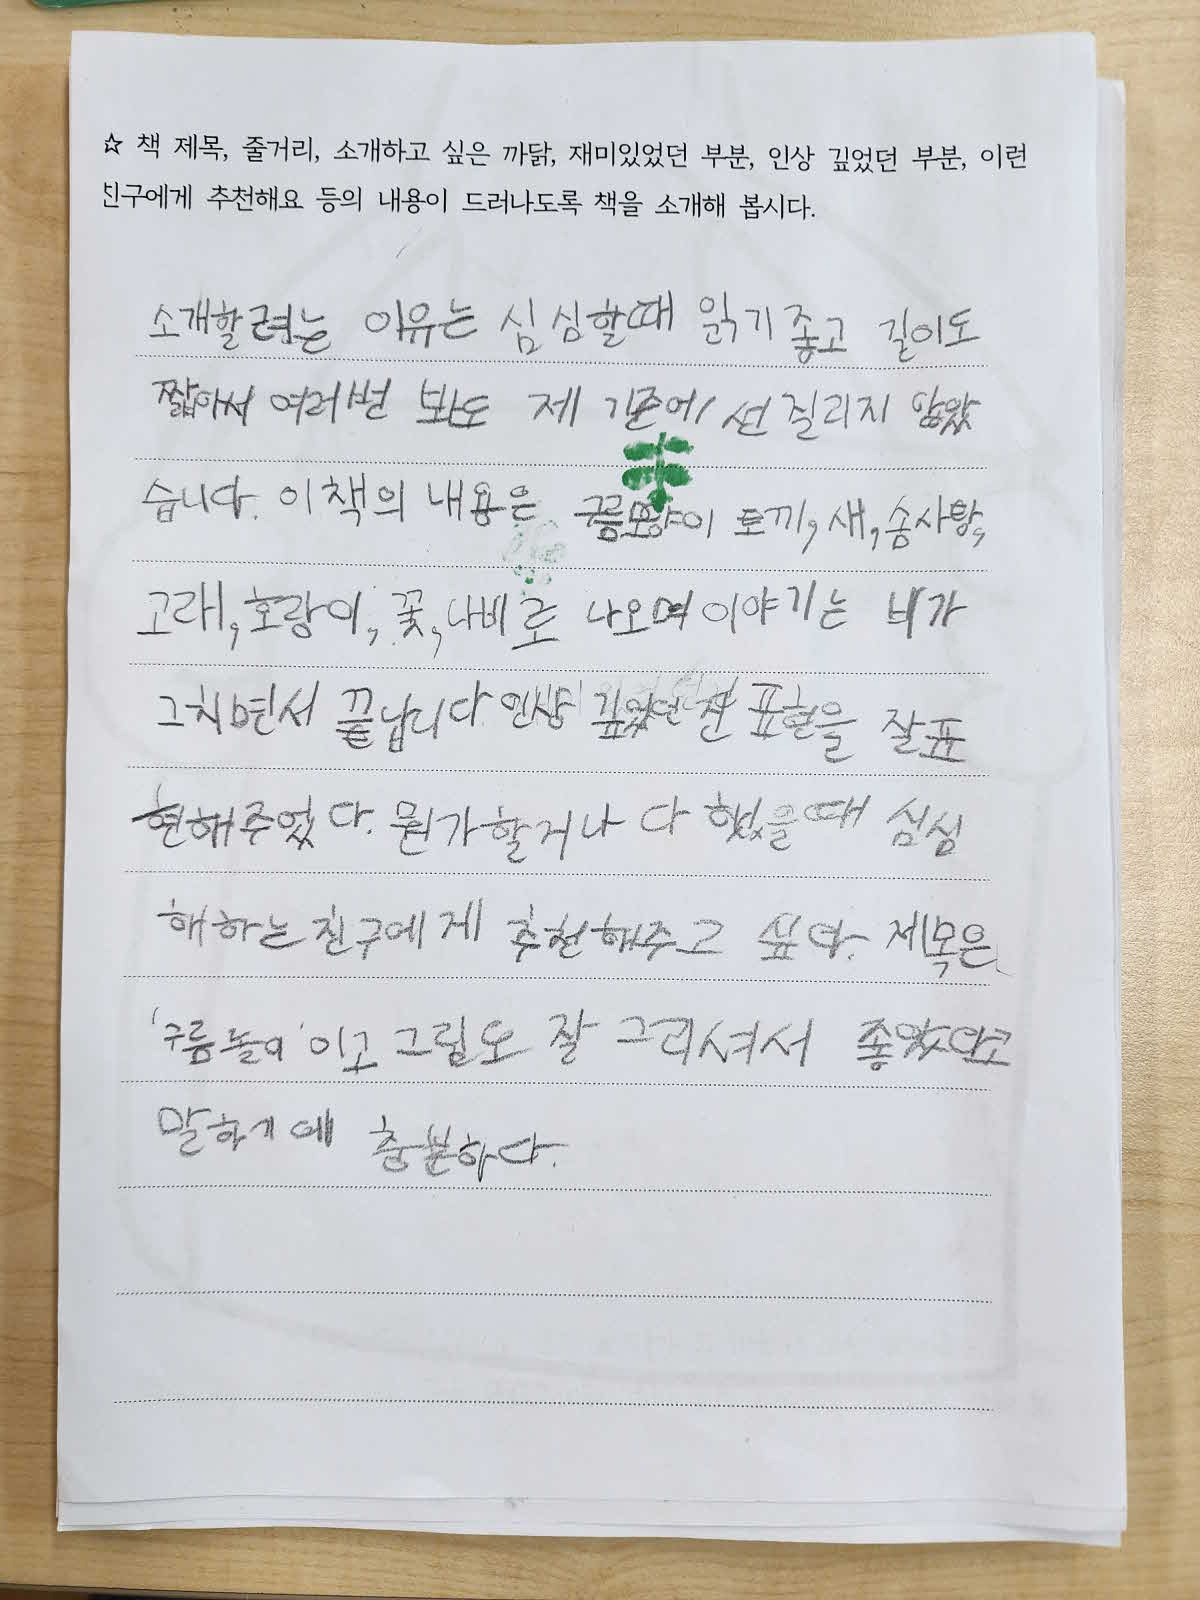 ☆ 책 제목, 줄거리, 소개하고 싶은 까닭, 재미있었던 부분, 인상 깊었던 부분, 이런
친구에게 추천해요 등의 내용이 드러나도록 책을 소개해 봅시다.
소개할려는 이유는 심심할때 읽기 좋고 길이도
짧아서 여러번 봐도 제 기준에선 질리지 않았
습니다. 이 책의 내용은 구름모양이 토끼, 새, 솜사탕,
고래, 호랑이, 꽃, 나비로 나오며 이야기는 비가
그치면서 끝납니다 인상 깊었던 건 표현을 잘표
현해주었다. 뭔가 할거나 다 했을때 심심
해하는 친구에게 추천해주고 싶다. 제목은
'구름 놀이' 이고 그림도 잘 그리셔서 좋았다고
말하기에 충분하다.